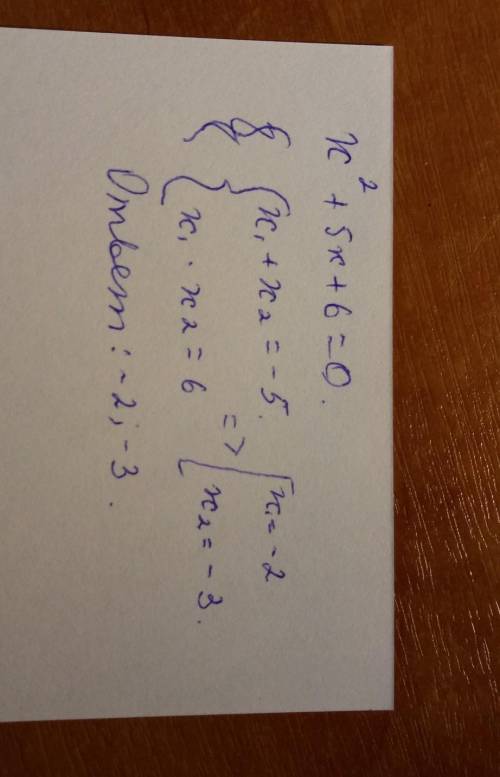 x² + 5x + 6 = 0.
{ x₁ + x₂ = -5.
{ x₁ · x₂ = 6 => [ x₁ = -2
[ x₂ = -3.
Ответ: -2; -3.